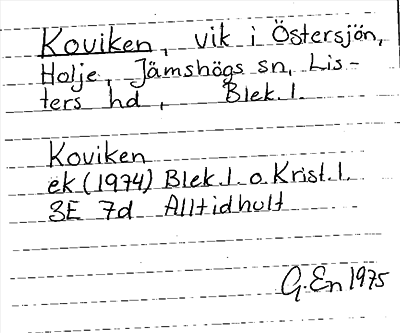 Koviken, vik i Östersjön,
Holje, Jämshögs sn, Lis-
ters hd, Blek. l.
Koviken
ek (1974) Blek. l. o. Krist. l.
3E 7d Alltidhult
G. En 1975